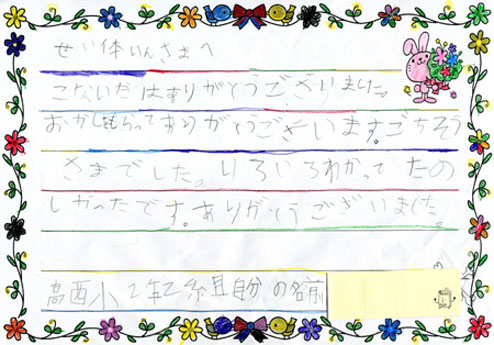 せい体いんさまへ
こないだはありがとうございました。
おかしもらってありがとうございます。ごちそう
さまでした。いろいろわかって たの
しかったです。ありがとうございました。
高西小 2年2組自分の名前